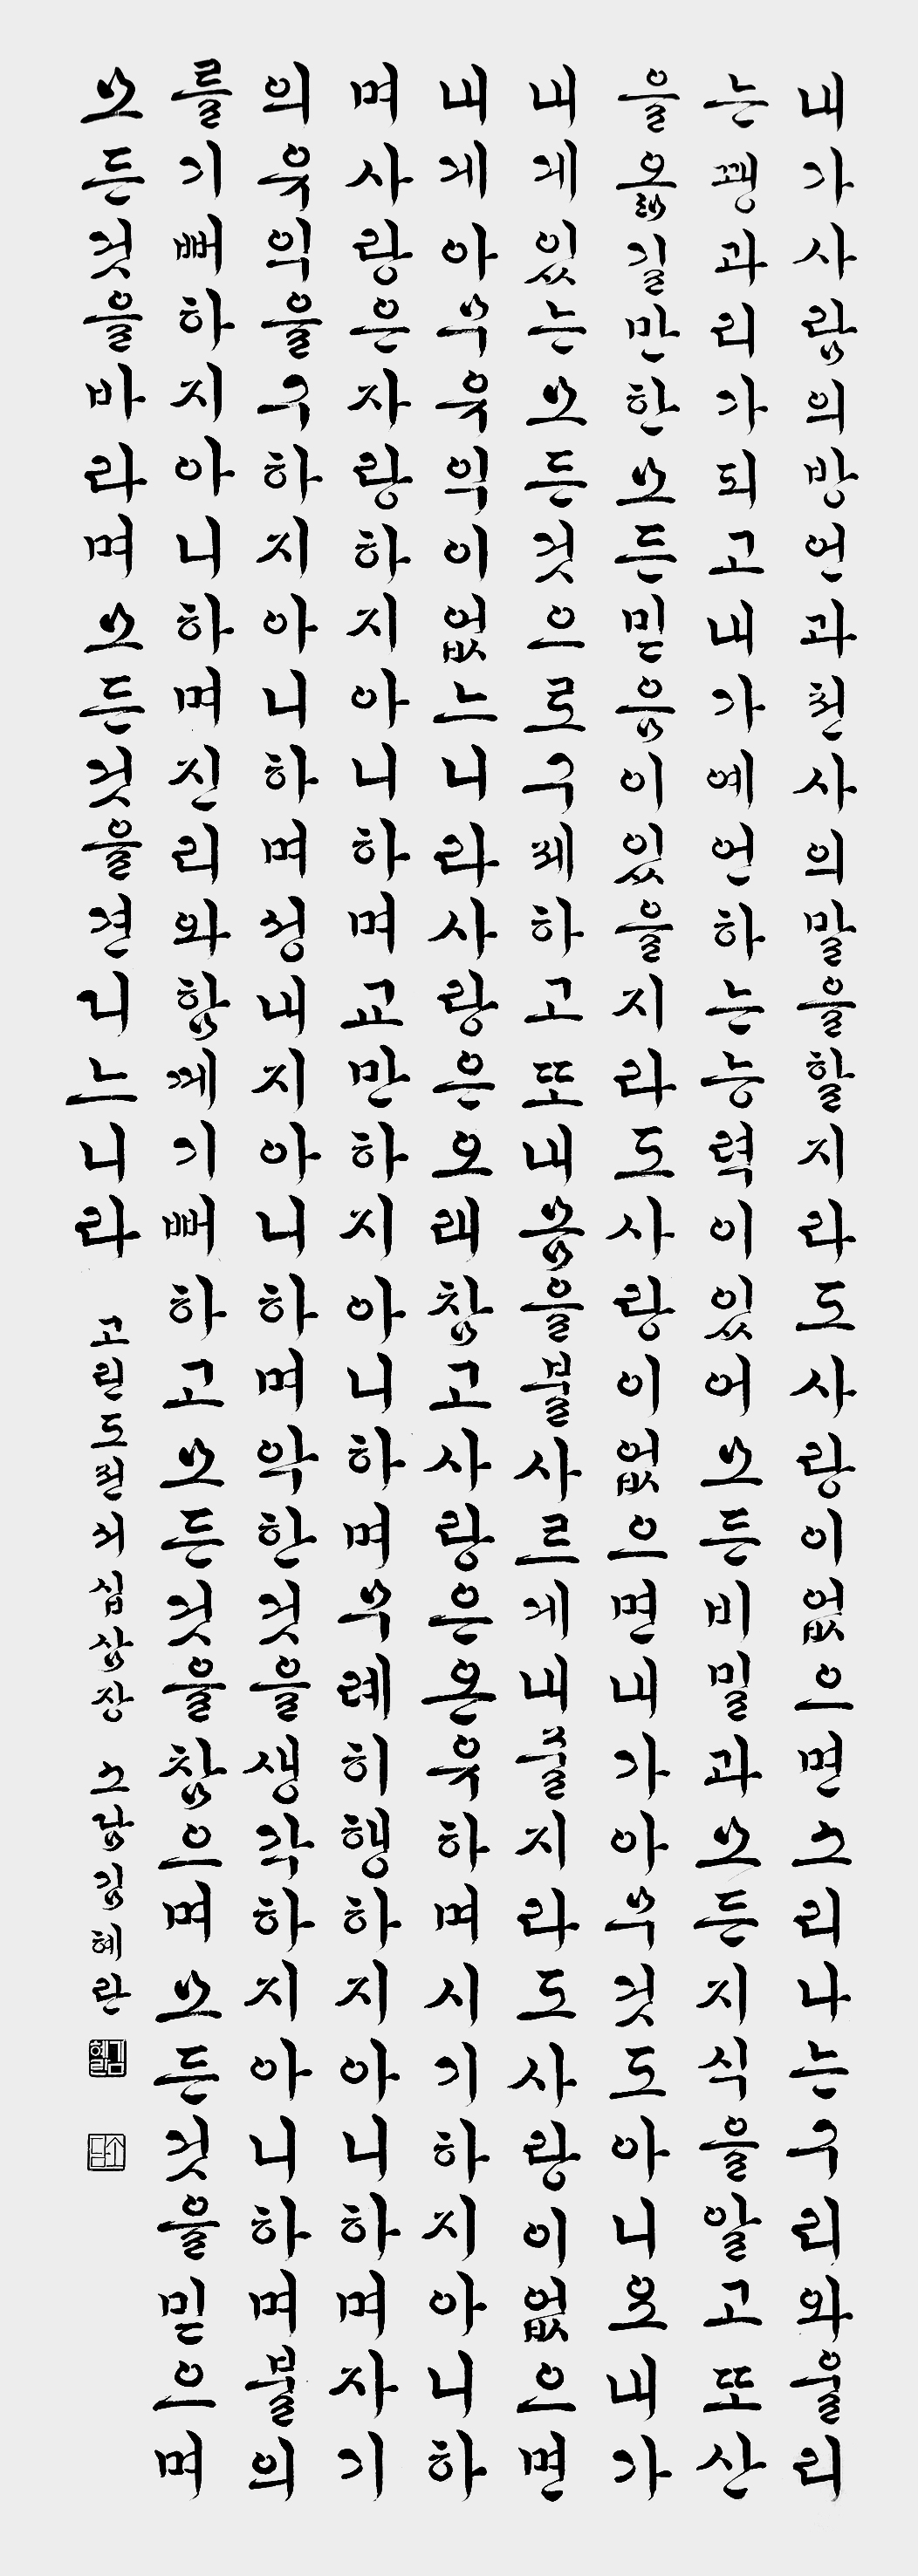 내가사람의방언과천사의말을할지라도사랑이없으면소리나는구리와울리
는꽹과리가되고내가예언하는능력이있어모든비밀과모든지식을알고또산
을옮길만한모든믿음이있을지라도사랑이없으면내가아무것도아니요내가
내게있는모든것으로구제하고또내몸을불사르게내줄지라도사랑이없으면
내게아무유익이없느니라사랑은오래참고사랑은온유하며시기하지아니하
며사랑은자랑하지아니하며교만하지아니하며무례히행하지아니하며자기
의유익을구하지아니하며성내지아니하며악한것을생각하지아니하며불의
를기뻐하지아니하며진리와함께기뻐하고모든것을참으며모든것을믿으며
모든것을바라며모든것을견디느니라 고린도전서십삼장 소담김혜란